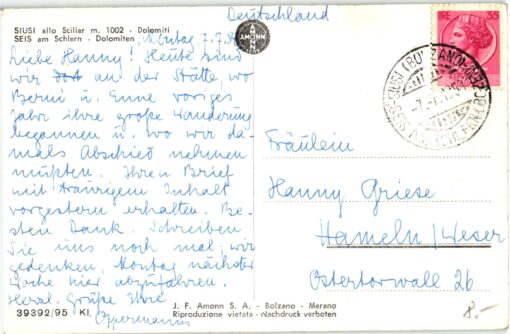 Deutschland
SIUSI allo Sciliar m. 1002 - Dolomiti
SEIS am Schlern - Dolomiten
Montag 7.7.
AMONN
LIRE 35
Liebe Hanny! Heute sind
wir dort an der Stätte wo
Berni u. Enne voriges
Jahr ihre große Wanderung
begannen u. wo wir da-
mals Abschied nehmen
mußten. Ihren Brief
mit traurigem Inhalt
vorgestern erhalten. Be-
sten Dank. Schreiben
Sie uns noch mal, wir
gedenken, Montag nächster
Woche hier abzufahren.
Herzl. Grüße Ihre
Oppermanns
Fräulein
Hanny Griese
Hameln/Weser
Ostertorwall 26
39392/95 Kl.
J. F. Amonn S. A. - Bolzano - Merano
Riproduzione vietata - Nachdruck verboten
8.-